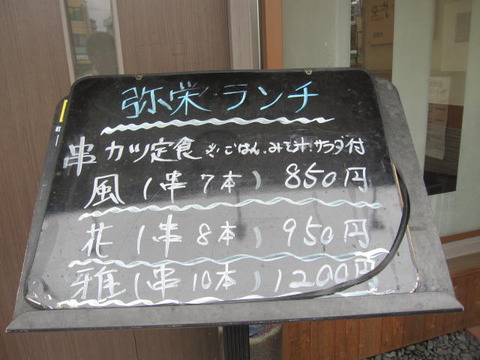 弥栄 ランチ
串カツ定食 ごはん.みそ汁.サラダ付
風 (串7本) 850円
花 (串8本) 950円
雅 (串10本) 1200円